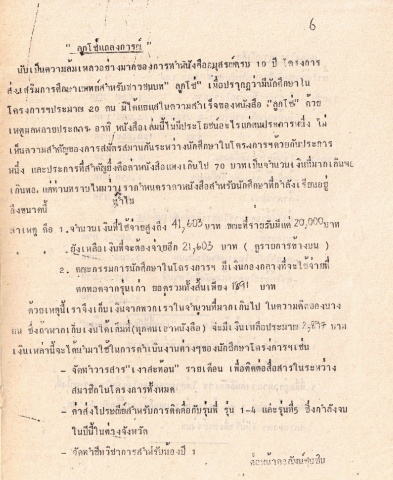 6
" ลูกโซ่แถลงการณ์ "
นับเป็นความล้มเหลวอย่างมากของการทำหนังสืออนุสรณ์ครบ 10 ปี โครงการ
ส่งเสริมการศึกษาแพทย์สำหรับชาวชนบท " ลูกโซ่" เมื่อปรากฏว่ามีนักศึกษาใน
โครงการฯประมาณ 20 คน มิได้แยแสในความสำเร็จของหนังสือ "ลูกโซ่" ด้วย
เหตุผลหลายประการ อาทิ หนังสือเล่มนี้ไม่มีประโยชน์อะไรแก่ตนประการหนึ่ง ไม่
เห็นความสำคัญของการสมัครสมานกันระหว่างนักศึกษาในโครงการฯด้วยกันประการ
หนึ่ง และประการที่สำคัญยิ่งคือค่าหนังสือแพงเกินไป 70 บาทเป็นจำนวนเงินที่มากเกินจะ
เกินพอ แต่ท่านทราบไหมว่าเรากำหนดราคาหนังสือสำหรับนักศึกษาที่กำลังเรียนอยู่
ถึงขนาดนี้ ทำไม
สาเหตุ คือ 1. จำนวนเงินที่ใช้จ่ายสูงถึง 41,603 บาท ขณะที่รายรับมีแค่ 20,000 บาท
ยังเหลือเงินที่จะต้องจ่ายอีก 21,603 บาท ( ดูรายการข้างบน )
2. คณะกรรมการนักศึกษาในโครงการฯ มีเงินกองกลางที่จะใช้จ่ายที่
ตกทอดจากรุ่นเก่า ยอดรวมทั้งสิ้นเพียง 1891 บาท
ด้วยเหตุนี้เราจึงเก็บเงินจากพวกเราในจำนวนที่มากเกินไป ในความคิดของบาง
คน ซึ่งถ้าหากเก็บเงินได้เต็มที่(ทุกคนเอาหนังสือ) จะมีเงินเหลือประมาณ บาท
เงินเหล่านี้จะได้นำมาใช้ในการดำเนินงานต่างๆของนักศึกษาในโครงการฯเช่น
- จัดทำวารสาร "เงาสะท้อน" รายเดือน เพื่อติดต่อสื่อสารในระหว่าง
สมาชิกในโครงการทั้งหมด
- ค่าส่งไปรษณีย์สำหรับการติดต่อกับรุ่นพี่ รุ่น 1-4 และรุ่นที่5 ซึ่งกำลังจบ
ในปีนี้ในต่างจังหวัด
- จัดทำชีทวิชาการสำหรับน้องปี 1